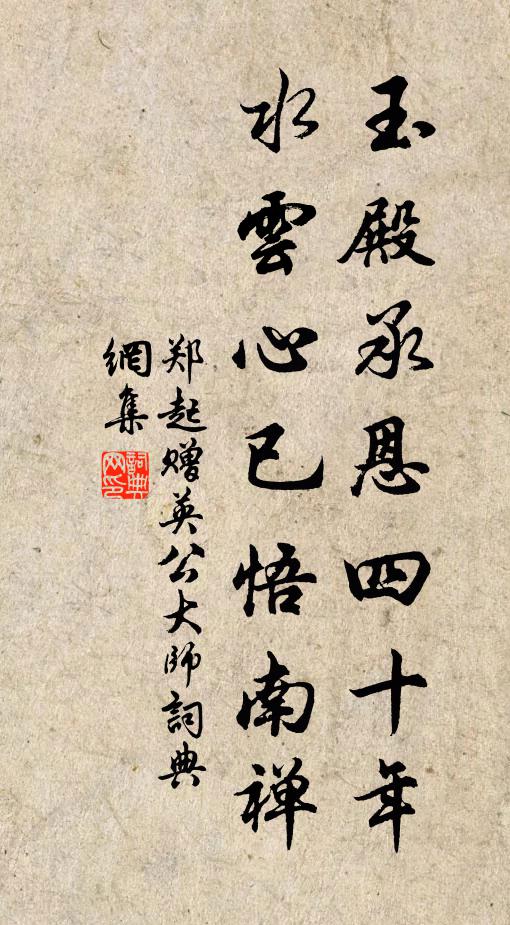 玉殿承恩四十年
水雲心已悟南禅
郑起赠英公大師詞典
網集
詞典
网印